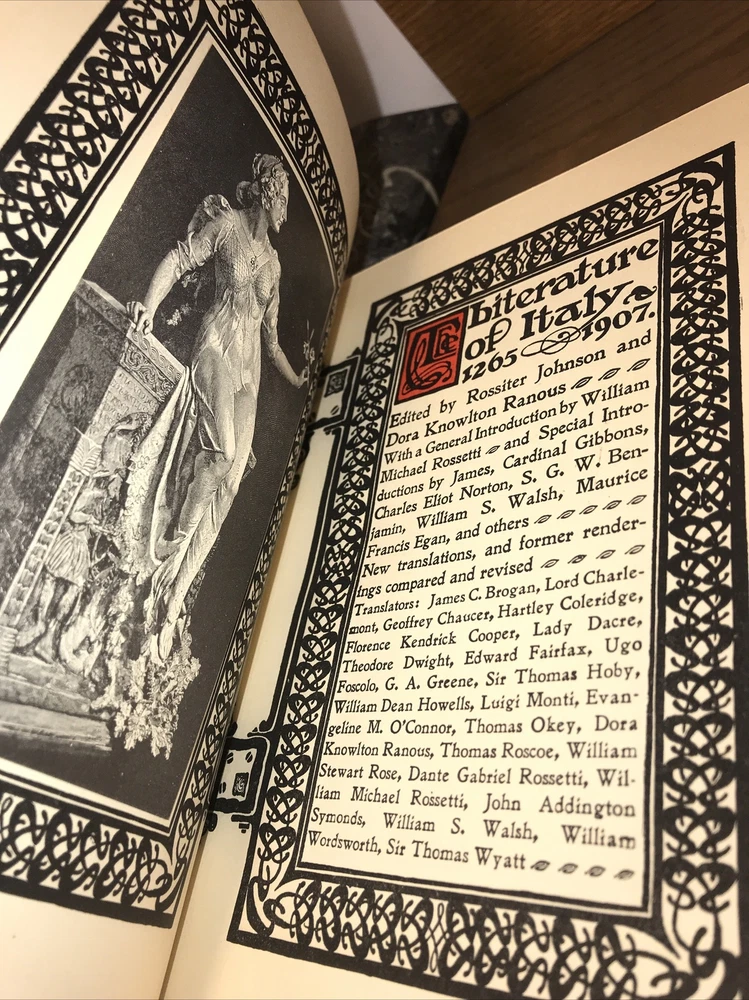 The Literature
of Italy
1265 1907.
Edited by Rossiter Johnson and
Dora Knowlton Ranous
With a General Introduction by William
Michael Rossetti and Special Intro-
ductions by James, Cardinal Gibbons,
Charles Eliot Norton, S. G. W. Ben-
jamin, William S. Walsh, Maurice
Francis Egan, and others
New translations, and former render-
ings compared and revised
Translators: James C. Brogan, Lord Charle-
mont, Geoffrey Chaucer, Hartley Coleridge,
Florence Kendrick Cooper, Lady Dacre,
Theodore Dwight, Edward Fairfax, Ugo
Foscolo, G. A. Greene, Sir Thomas Hoby,
William Dean Howells, Luigi Monti, Evan-
geline M. O'Connor, Thomas Okey, Dora
Knowlton Ranous, Thomas Roscoe, William
Stewart Rose, Dante Gabriel Rossetti, Wil-
liam Michael Rossetti, John Addington
Symonds, William S. Walsh, William
Wordsworth, Sir Thomas Wyatt